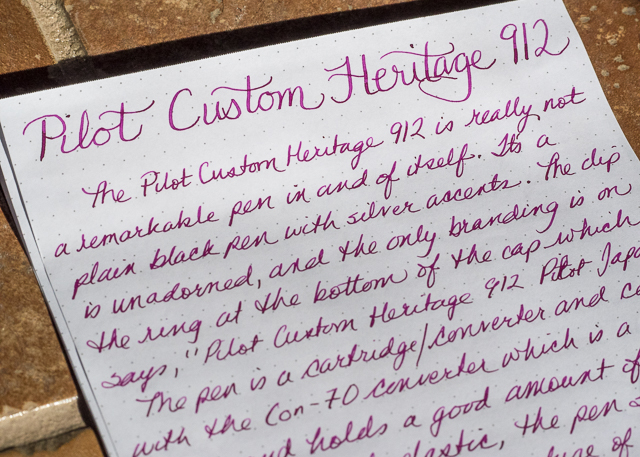 Pilot Custom Heritage 912
The Pilot Custom Heritage 912 is really not
a remarkable pen in and of itself. It's a
plain black pen with silver accents. The clip
is unadorned, and the only branding is on
the ring at the bottom of the cap which
says, "Pilot Custom Heritage 912 Pilot Japa
The pen is a cartridge/converter and co
with the Con-70 converter which is a
and holds a good amount of
plastic, the pen
of